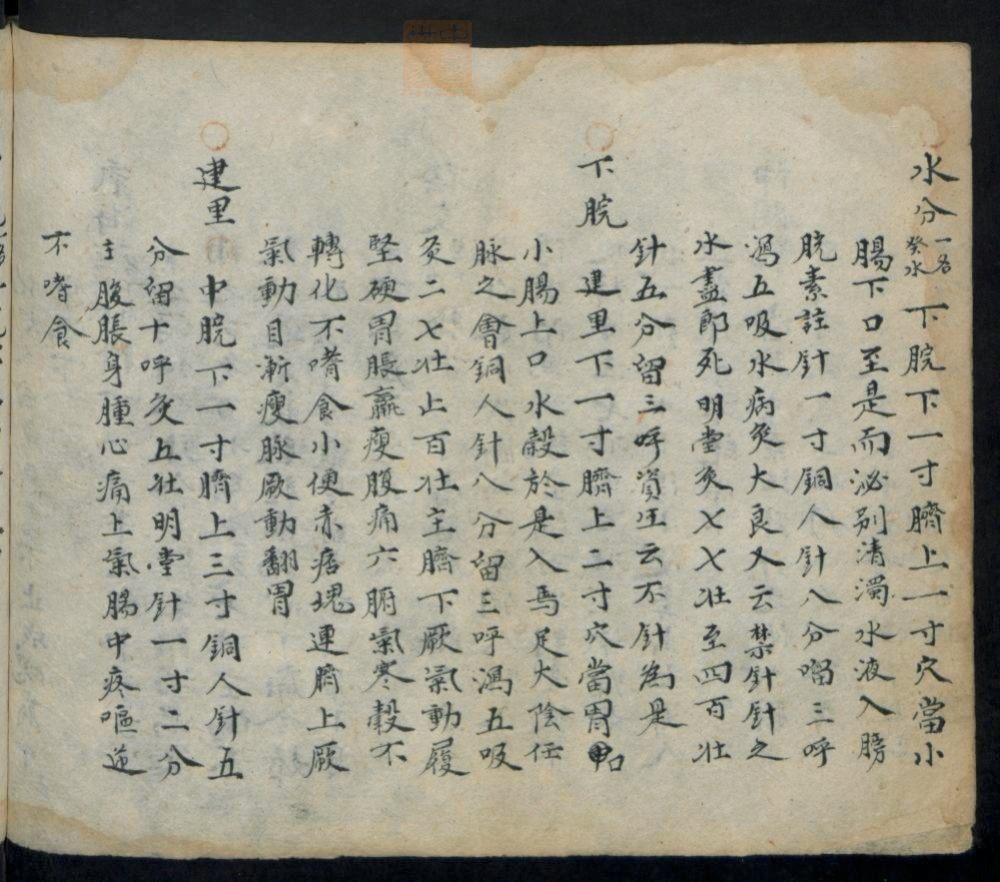 水分 一名癸水 下脘下一寸臍上一寸穴當小
腸下口至是而泌别清濁水液入膀
脘素註針一寸銅人針八分留三呼
瀉五吸水病灸大良又云禁針針之
水盡即死明堂灸七七壯至四百壯
針五分留三呼資生云不針為是
下脘 建里下一寸臍上二寸穴當胃
小腸上口水穀於是入焉足大陰任
脉之會銅人針八分留三呼瀉五吸
灸二七壯止百壯主臍下厥氣動履
堅硬胃脹羸瘦腹痛六腑氣寒穀不
轉化不嗜食小便赤痞塊連臍上厥
氣動目漸瘦脉厥動翻胃
建里 中脘下一寸臍上三寸銅人針五
分留十呼灸五壯明堂針一寸二分
主腹脹身腫心痛上氣腸中疼嘔逆
不嗜食